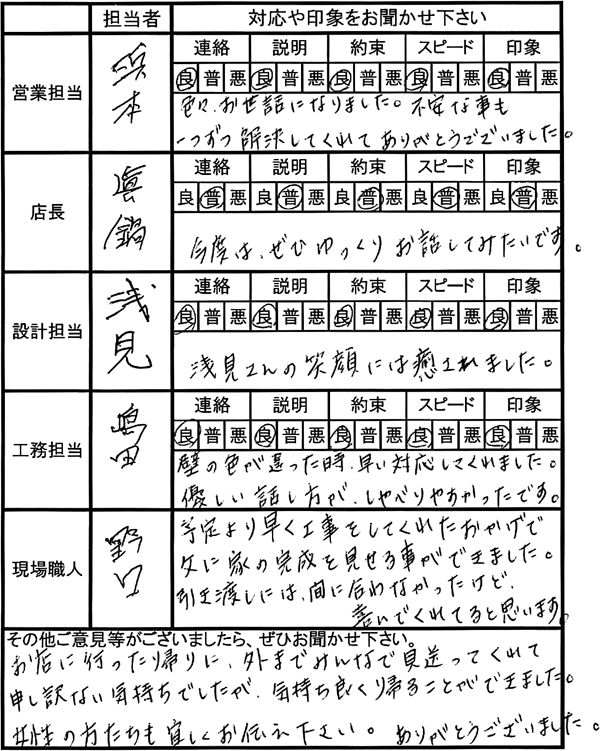 担当者 対応や印象をお聞かせ下さい
営業担当 浜本
連絡 説明 約束 スピード 印象
良 普 悪 良 普 悪 良 普 悪 良 普 悪 良 普 悪
色々、お世話になりました。不安な事も
一つずつ解決してくれてありがとうございました。
店長 眞鍋
連絡 説明 約束 スピード 印象
良 普 悪 良 普 悪 良 普 悪 良 普 悪 良 普 悪
今度は、ぜひゆっくりお話してみたいです。
設計担当 浅見
連絡 説明 約束 スピード 印象
良 普 悪 良 普 悪 良 普 悪 良 普 悪 良 普 悪
浅見さんの笑顔には癒されました。
工務担当 嶋田
連絡 説明 約束 スピード 印象
良 普 悪 良 普 悪 良 普 悪 良 普 悪 良 普 悪
壁の色が違った時、早い対応してくれました。
優しい話し方が、しゃべりやすかったです。
現場職人 野口
予定より早く工事をしてくれたおかげで
父に家の完成を見せる事ができました。
引き渡しには、間に合わなかったけど、
喜んでくれてると思います。
その他ご意見等がございましたら、ぜひお聞かせ下さい。
お店に行ったり帰りに、外までみんなで見送ってくれて
申し訳ない気持ちでしたが、気持ち良くり帰ることができました。
女性の方たちも宜しくお伝え下さい。ありがとうございました。